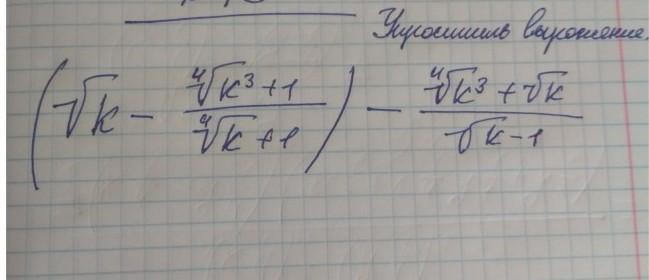 Упростить выражение.
(√k - (∜k³ + 1)/(∜k + 1)) - (∜k³ + √k)/(√k - 1)